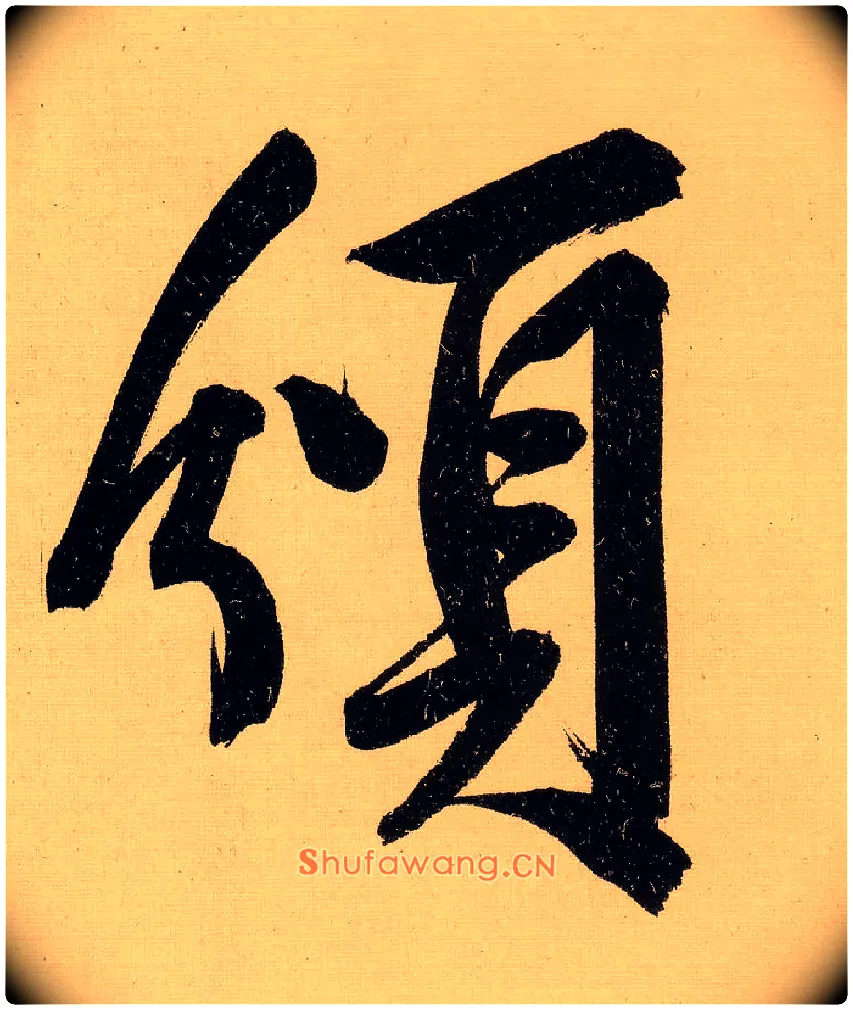 頌
Shufawang.CN